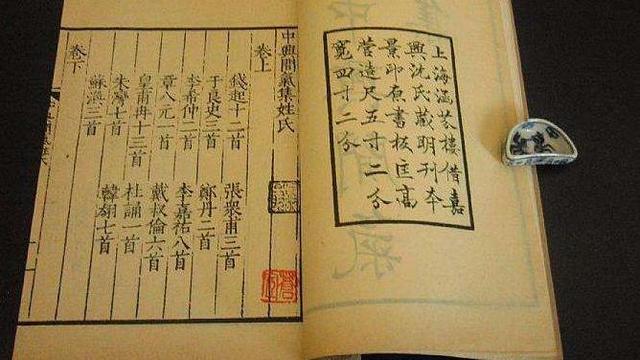 上海涵芬樓借嘉
興沈氏藏明刊本
景印原書板匡高
營造尺五寸二分
寬四寸二分
中興間氣集姓氏
卷上
錢起十二首 張衆甫三首
于良史二首 鄭丹二首
李希仲二首 李嘉祐八首
章八元一首 戴叔倫六首
皇甫冉十三首 杜誦一首
朱灣七首 韓翃七首
蘇渙三首
卷下